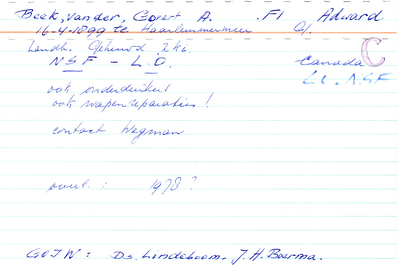 Beek, van der, Govert A. F1 Adward
16-4-1899 te Haarlemmermeer
Landb. Gehuwd, 2 k.
NSF - L.O. Canada
C
LO - NSF
ook onderduiker!
ook wapenreparaties!
contact Wegman
1978?
GOIW: Ds. Lindeboom. J.H. Boerma.